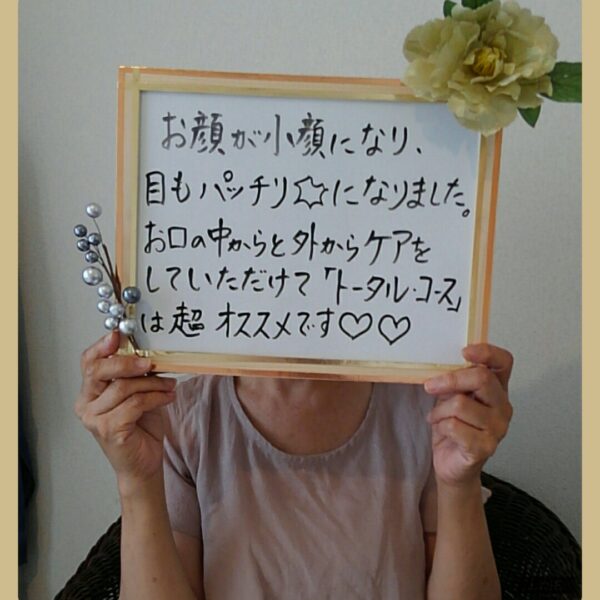 お顔が小顔になり、
目もパッチリ☆になりました。
お口の中からと外からケアを
していただけて「トータル・コース」
は超オススメです♡♡